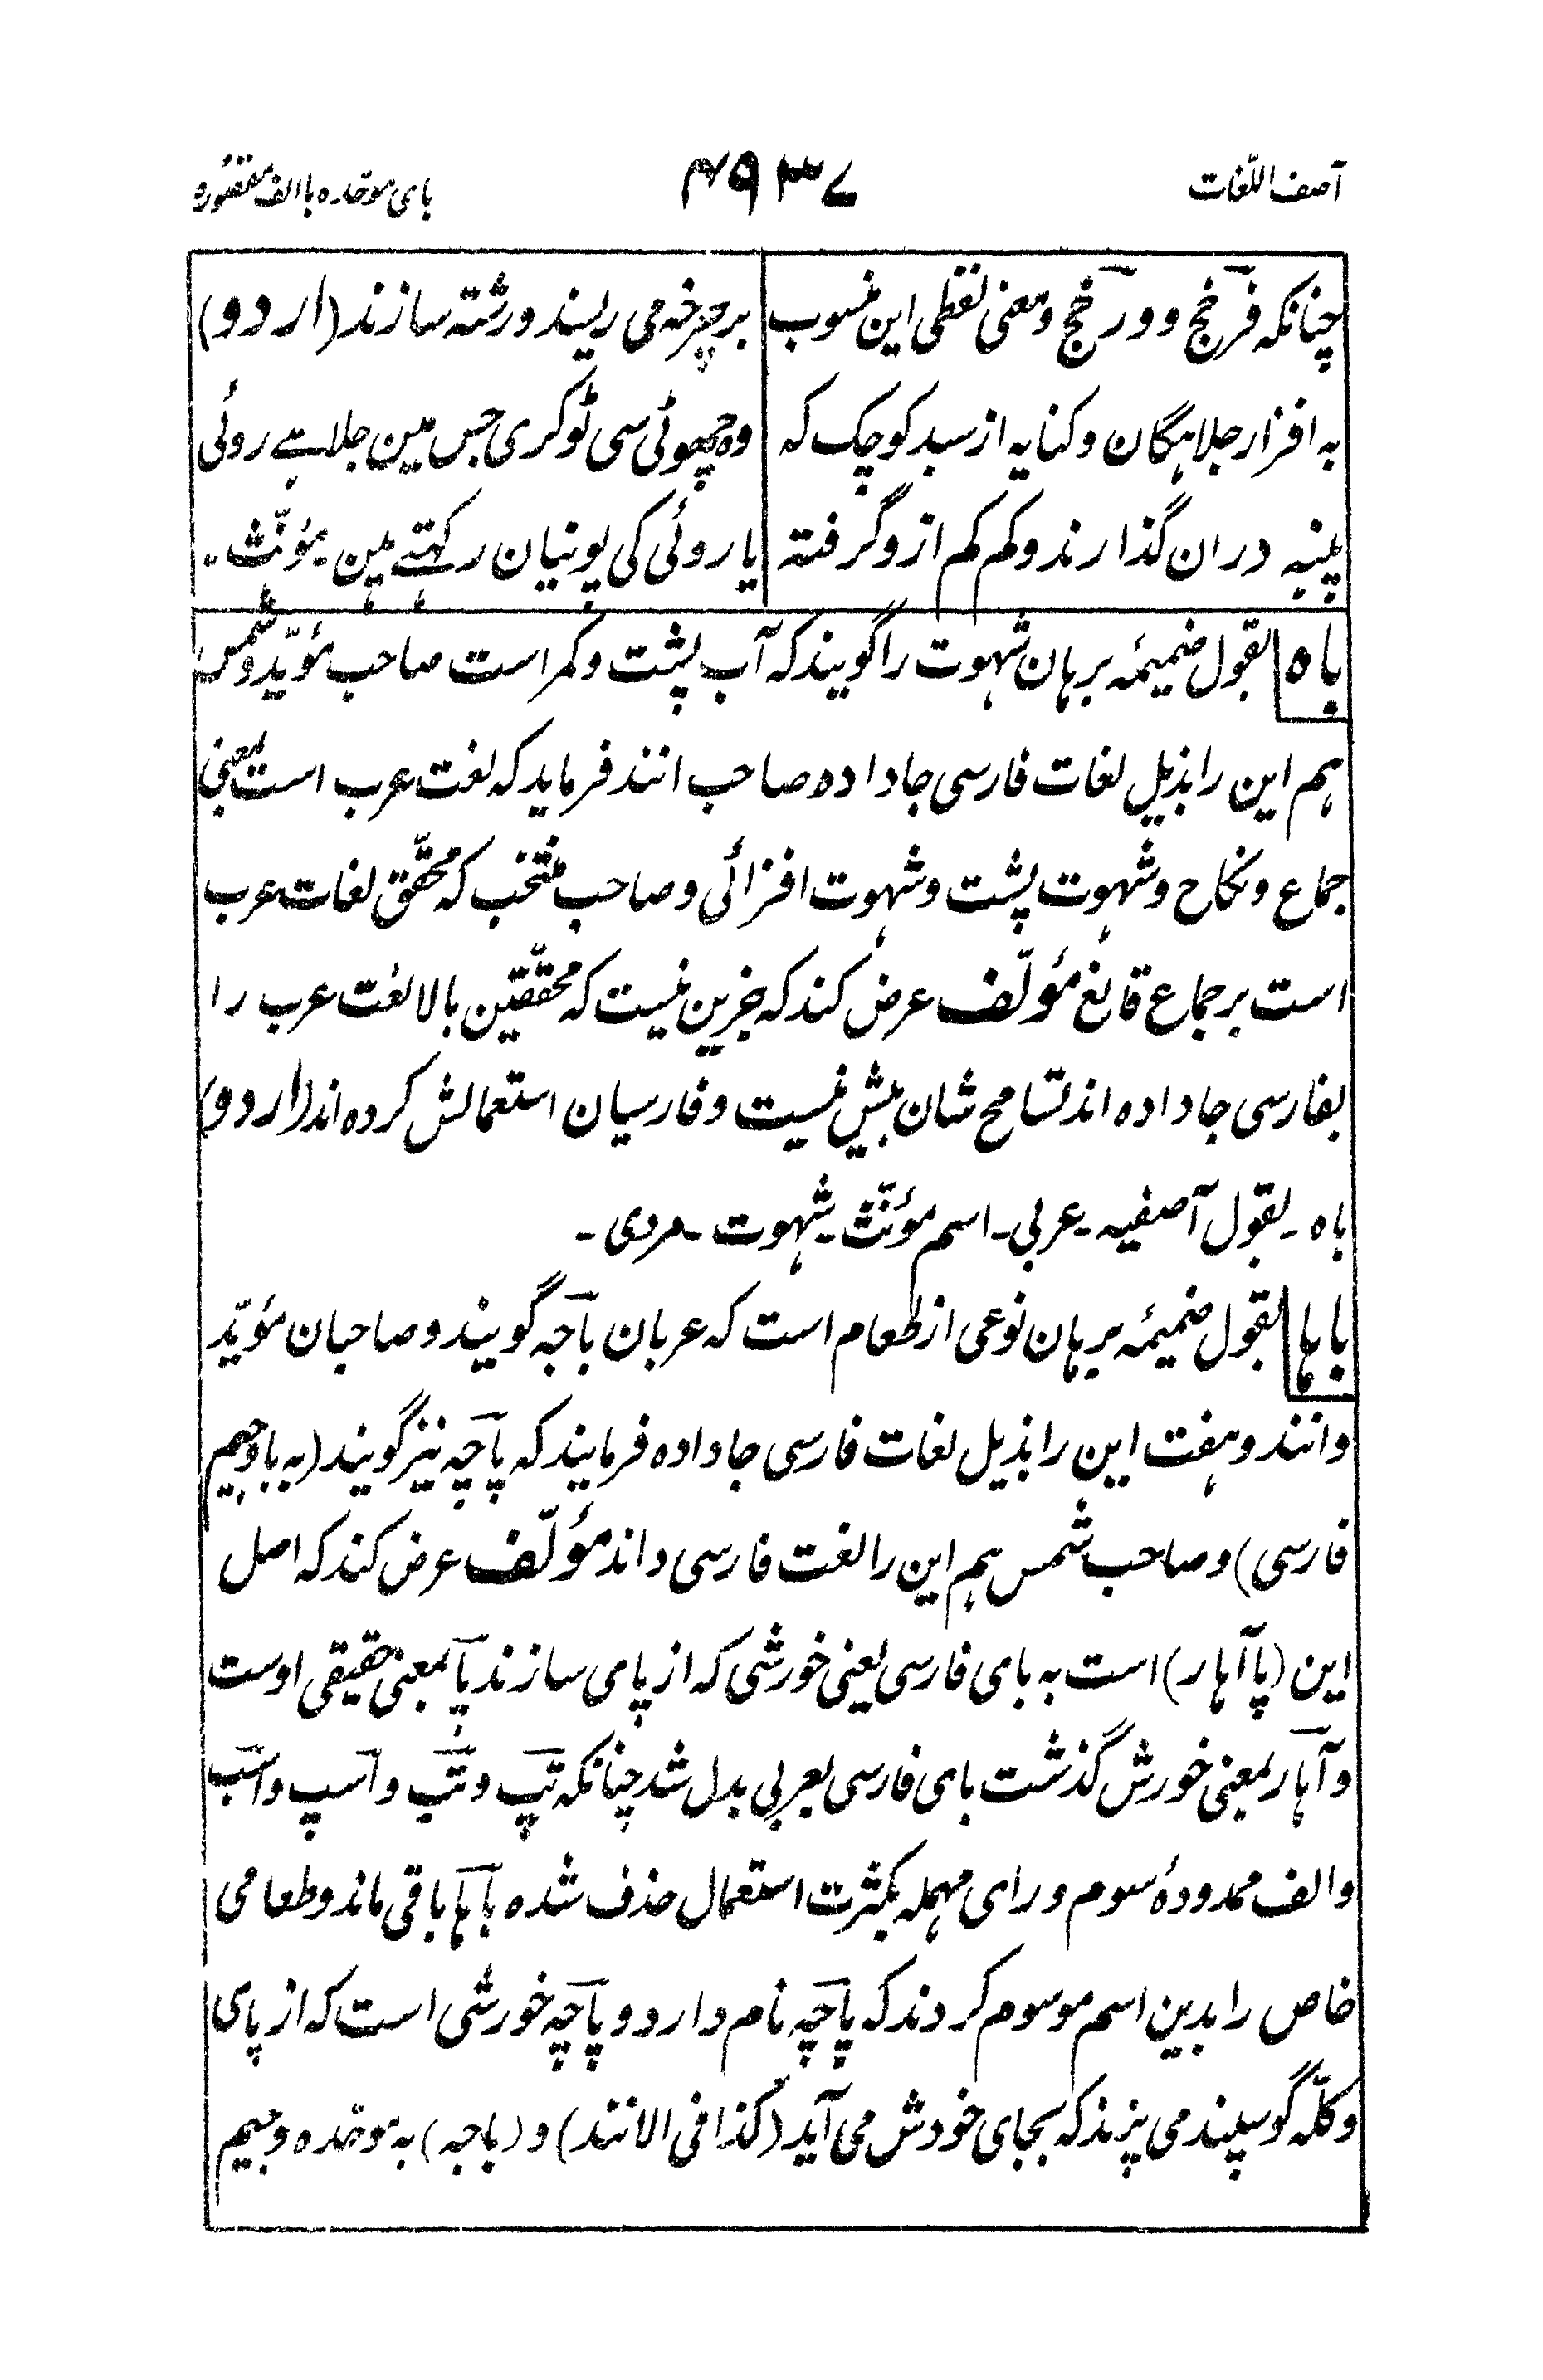 آصف اللّغات
۴۹۳۷
بای موحّده با الف مقصُوره
چنانکہ فرَخج و ورَخج و معنی لفظی این منسوب
بہ افزار جلاہگان و کنایہ از سبد کوچک کہ
پنبہ دران گذارند و کم کم از و گرفتہ
بر چرخہ می ریسند و رشتہ سازند (اردو)
وہ چھوٹی سی ٹوکری جس مین جلاہے روئی
یا روئی کی پونیان رکھتے ہین۔ مؤنّث۔
باہ بقول ضمیمۂ برہان شہوت را گویند کہ آب پشت و کمر است صاحب مؤیّد و شمس
ہم این را بذیل لغات فارسی جا دادہ صاحب انند فرماید کہ لغت عرب است بمعنی
جماع و نکاح و شہوت پشت و شہوت افزائی و صاحب منتخب کہ محقّق لغات عرب
است بر جماع قانع مؤلّف عرض کند کہ جزین نیست کہ محقّقین بالا لغت عرب را
بفارسی جا دادہ اند تسامح شان بیش نیست و فارسیان استعمالش کردہ اند (اردو)
باہ۔ بقول آصفیہ۔ عربی۔ اسم مؤنّث۔ شہوت۔ مردی۔
باہا بقول ضمیمۂ برہان نوعی از طعام است کہ عربان باجَہ گویند و صاحبان مؤیّد
و انند و ہفت این را بذیل لغات فارسی جا دادہ فرمایند کہ پاچَہ نیز گویند (بہ با و جیم
فارسی) و صاحب شمس ہم این را لغت فارسی داند مؤلّف عرض کند کہ اصل
این (پاآہار) است بہ بای فارسی یعنی خورشی کہ از پای سازند پا بمعنی حقیقی اوست
و آہار بمعنی خورش گذشت بای فارسی بعربی بدل شد چنانکہ تپ و تب و اسپ و اسب
و الف ممدودۂ سوم و رای مہملہ بکثرت استعمال حذف شدہ باہا باقی ماند و طعامی
خاص را بدین اسم موسوم کردند کہ پاچَہ نام دارد و پاچَہ خورشی است کہ از پای
و کلّہ گوسپند می پزند کہ بجای خودش می آید (کذا فی الانند) و (باجہ) بہ موحّدہ و جیم